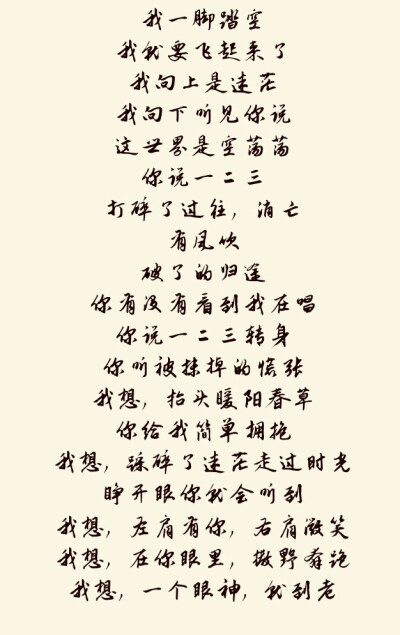 我一脚踏空
我就要飞起来了
我向上是迷茫
我向下听见你说
这世界是空荡荡
你说一二三
打碎了过往，消亡
有风吹
破了的归途
你有没有看到我在唱
你说一二三转身
你听被抹掉的慌张
我想，抬头暖阳春草
你给我简单拥抱
我想，踩碎了迷茫走过时光
睁开眼你就会听到
我想，左肩有你，右肩微笑
我想，在你眼里，撒野奔跑
我想，一个眼神，就到老